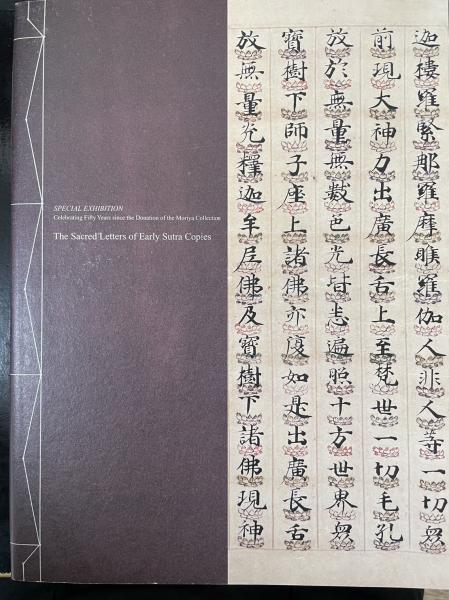 SPECIAL EXHIBITION
Celebrating Fifty Years since the Donation of the Moriya Collection
The Sacred Letters of Early Sutra Copies
迦樓羅緊那羅摩睺羅伽人非人等一切衆
前現大神力出廣長舌上至梵世一切毛孔
放於無量無數色光皆悉遍照十方世界衆
寶樹下師子座上諸佛亦復如是出廣長舌
放無量光釋迦牟尼佛及寶樹下諸佛現神